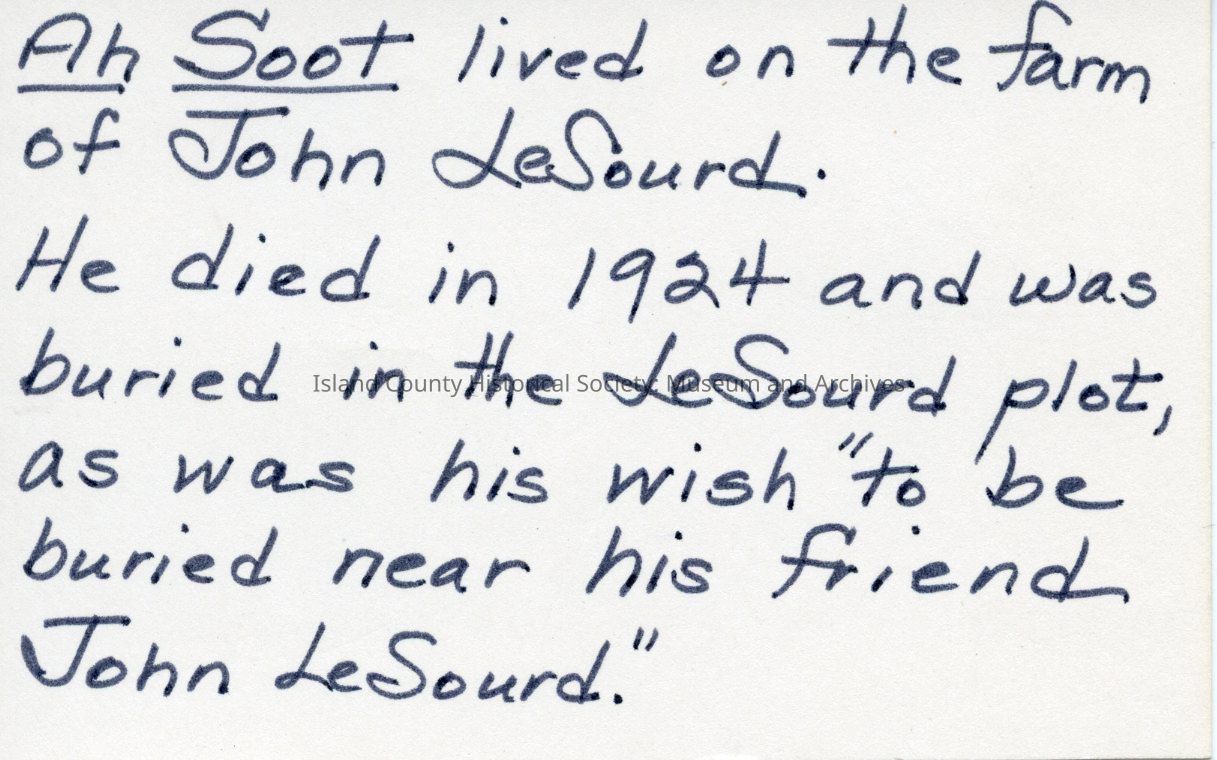 Ah Soot lived on the farm
of John LeSourd.
He died in 1924 and was
buried in the LeSourd plot,
Island County Historical Society, Museum and Archives
as was his wish "to be
buried near his friend
John LeSourd."